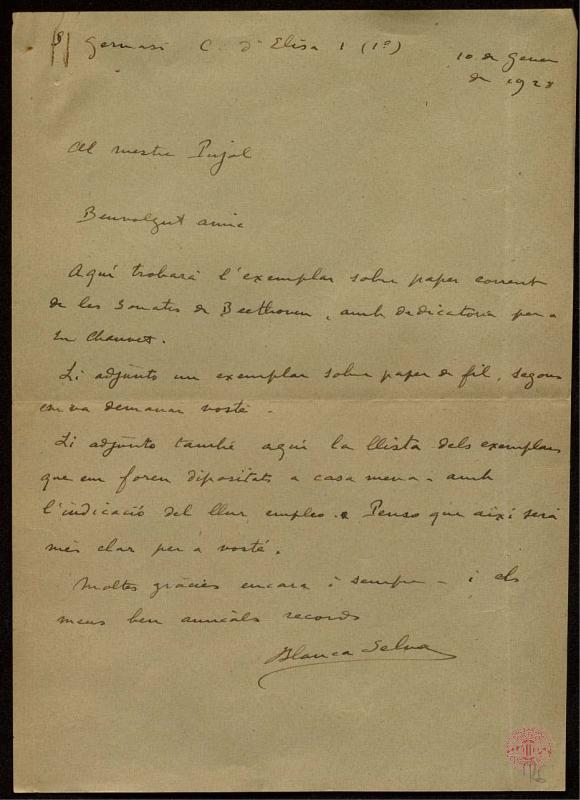 (S) Gervasi C. d'Elisa 1 (1º)
10 de Gener
de 1928
Al mestre Pujol
Benvolgut amic
Aquí trobarà l'exemplar sobre paper corrent
de les Sonates de Beethoven, amb dedicatòria per a
En Chauvet.
Li adjunto un exemplar sobre paper de fil, segons
em va demanar vostè.
Li adjunto també aquí la llista dels exemplars
que em foren dipositats a casa meva - amb
l'indicació del llur empleo. Penso que així serà
més clar per a vostè.
Moltes gràcies encara i sempre - i els
meus ben amicals records
Blanca Selva